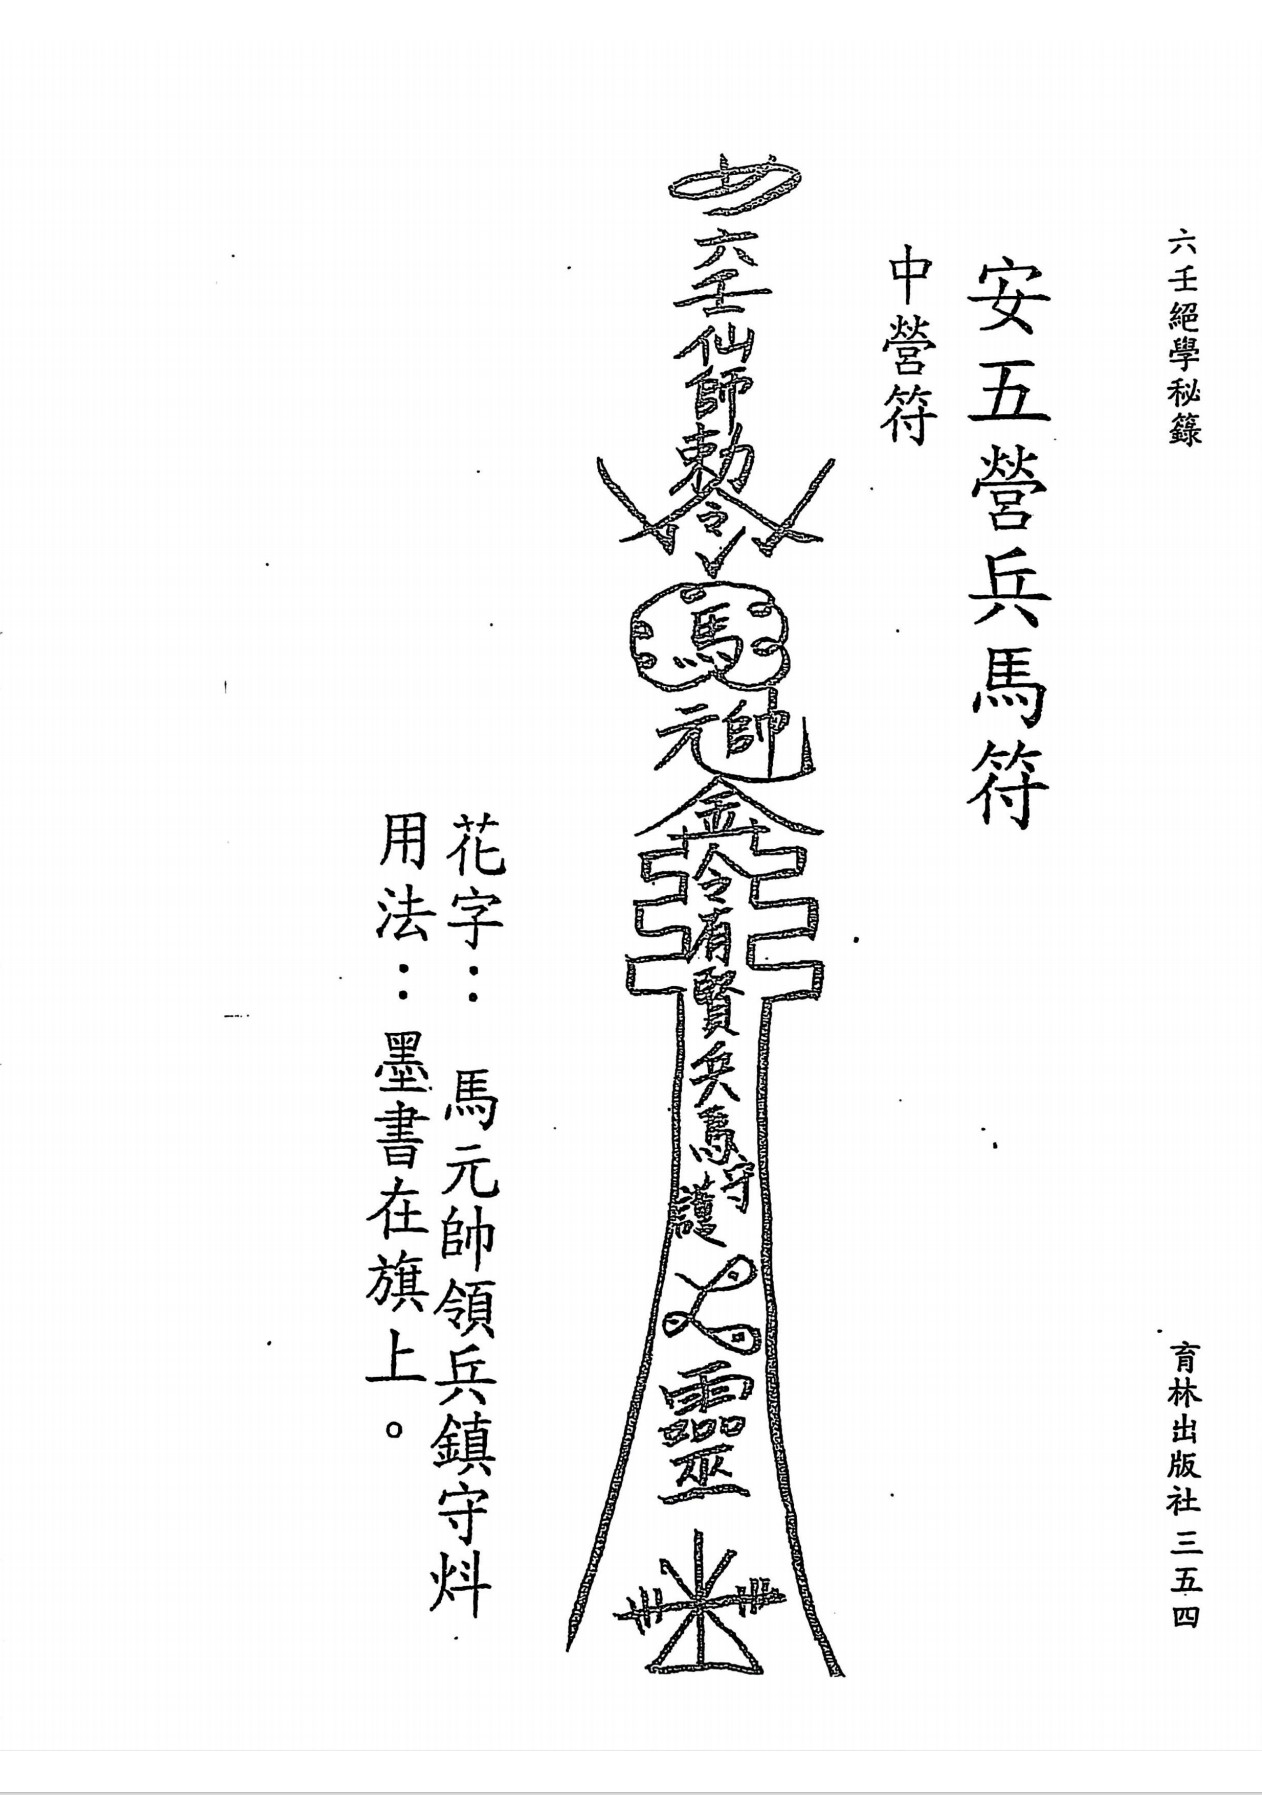 六壬絕學秘籙
育林出版社 三五四
安五營兵馬符
中營符
六壬仙師勅令
馬
元帥
金
令有賢兵馬守護
靈
花字：馬元帥領兵鎮守炓
用法：墨書在旗上。